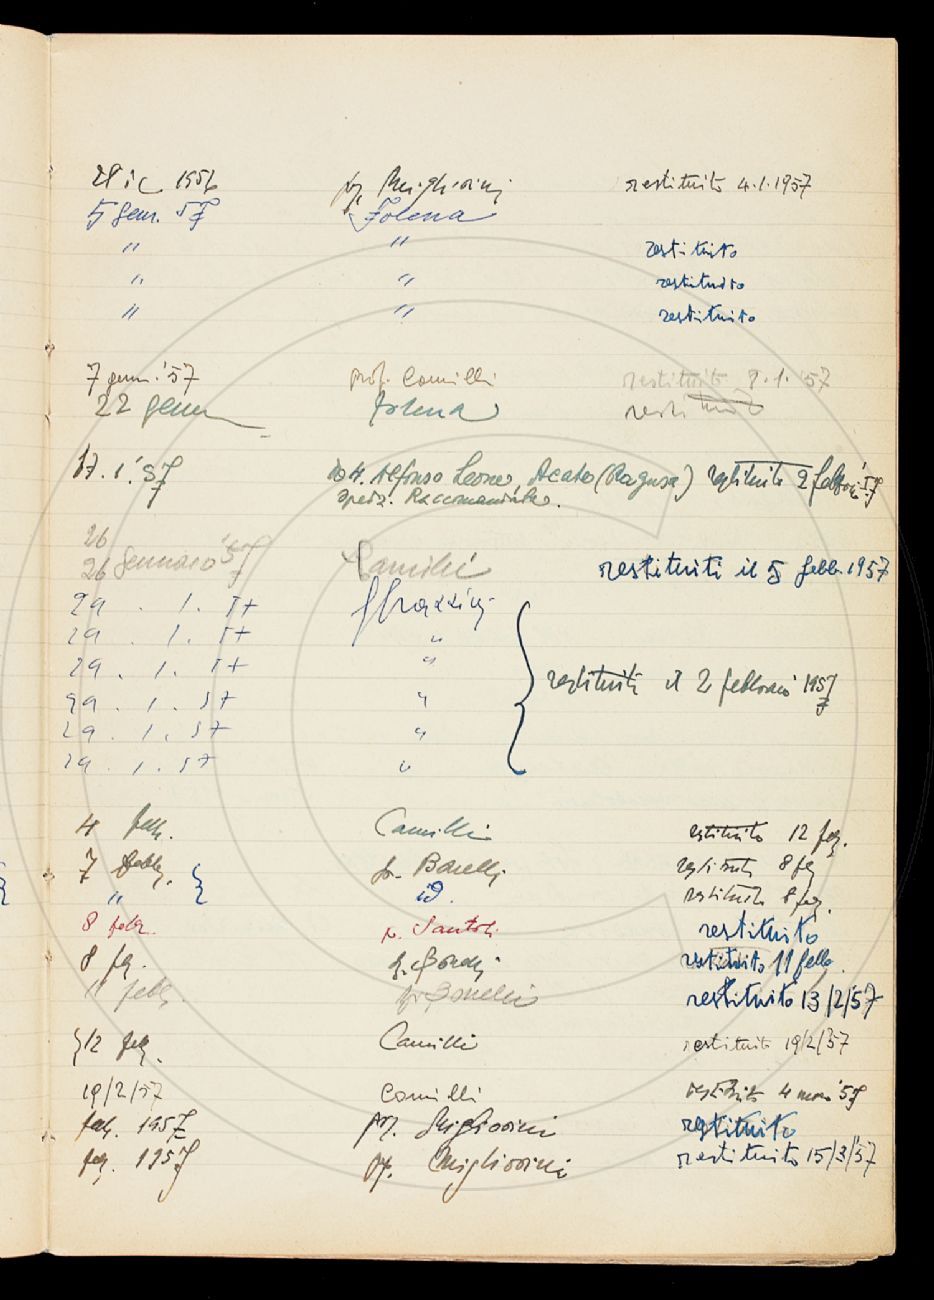 1956 restituito 4.1.1957
5 genn. 57 Folena
" " restituito
" " restituito
" " restituito
7 genn. '57 prof. Camilli restituito 8.1.'57
22 genn Folena
17.1.'57 Alfonso Leone, Acate (Ragusa) restituito 2 febbraio '57
spediz. Raccomandata.
26
26 gennaio '57 Camilli restituiti il 5 febb. 1957
29.1.57
29.1.57 "
29.1.57 "
29.1.57 " restituiti il 2 febbraio 1957
29.1.57 "
29.1.57 "
4 feb. Camilli restituito 12 feb.
7 febb. restituito 8 feb
" id. restituito 8 feb.
8 febr. p. Santoli restituito
8 feb. restituito 11 febb.
11 febb. restituito 13/2/57
12 feb. Camilli restituito 19/2/57
19/2/57 Camilli restituito 4 '57
feb. 1957 prof. Migliorini restituito
feb. 1957 prof. Migliorini restituito 15/3/57